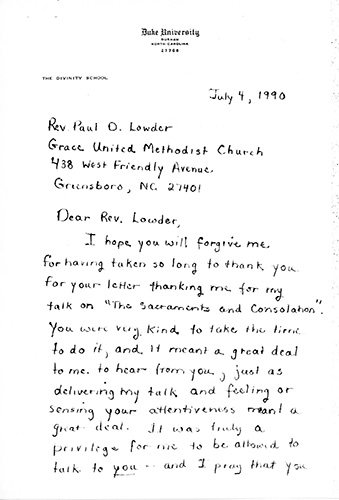 Duke University
DURHAM
NORTH CAROLINA
27706
THE DIVINITY SCHOOL
July 4, 1990
Rev Paul D. Lowder
Grace United Methodist Church
438 West Friendly Avenue
Greensboro, NC 27401
Dear Rev. Lowder,
I hope you will forgive me
for having taken so long to thank you
for your letter thanking me for my
talk on "The Sacraments and Consolation".
You were very kind to take the time
to do it, and it meant a great deal
to me to hear from you, just as
delivering my talk and feeling or
sensing your attentiveness meant a
great deal. It was truly a
privilege for me to be allowed to
talk to you -- and I pray that you